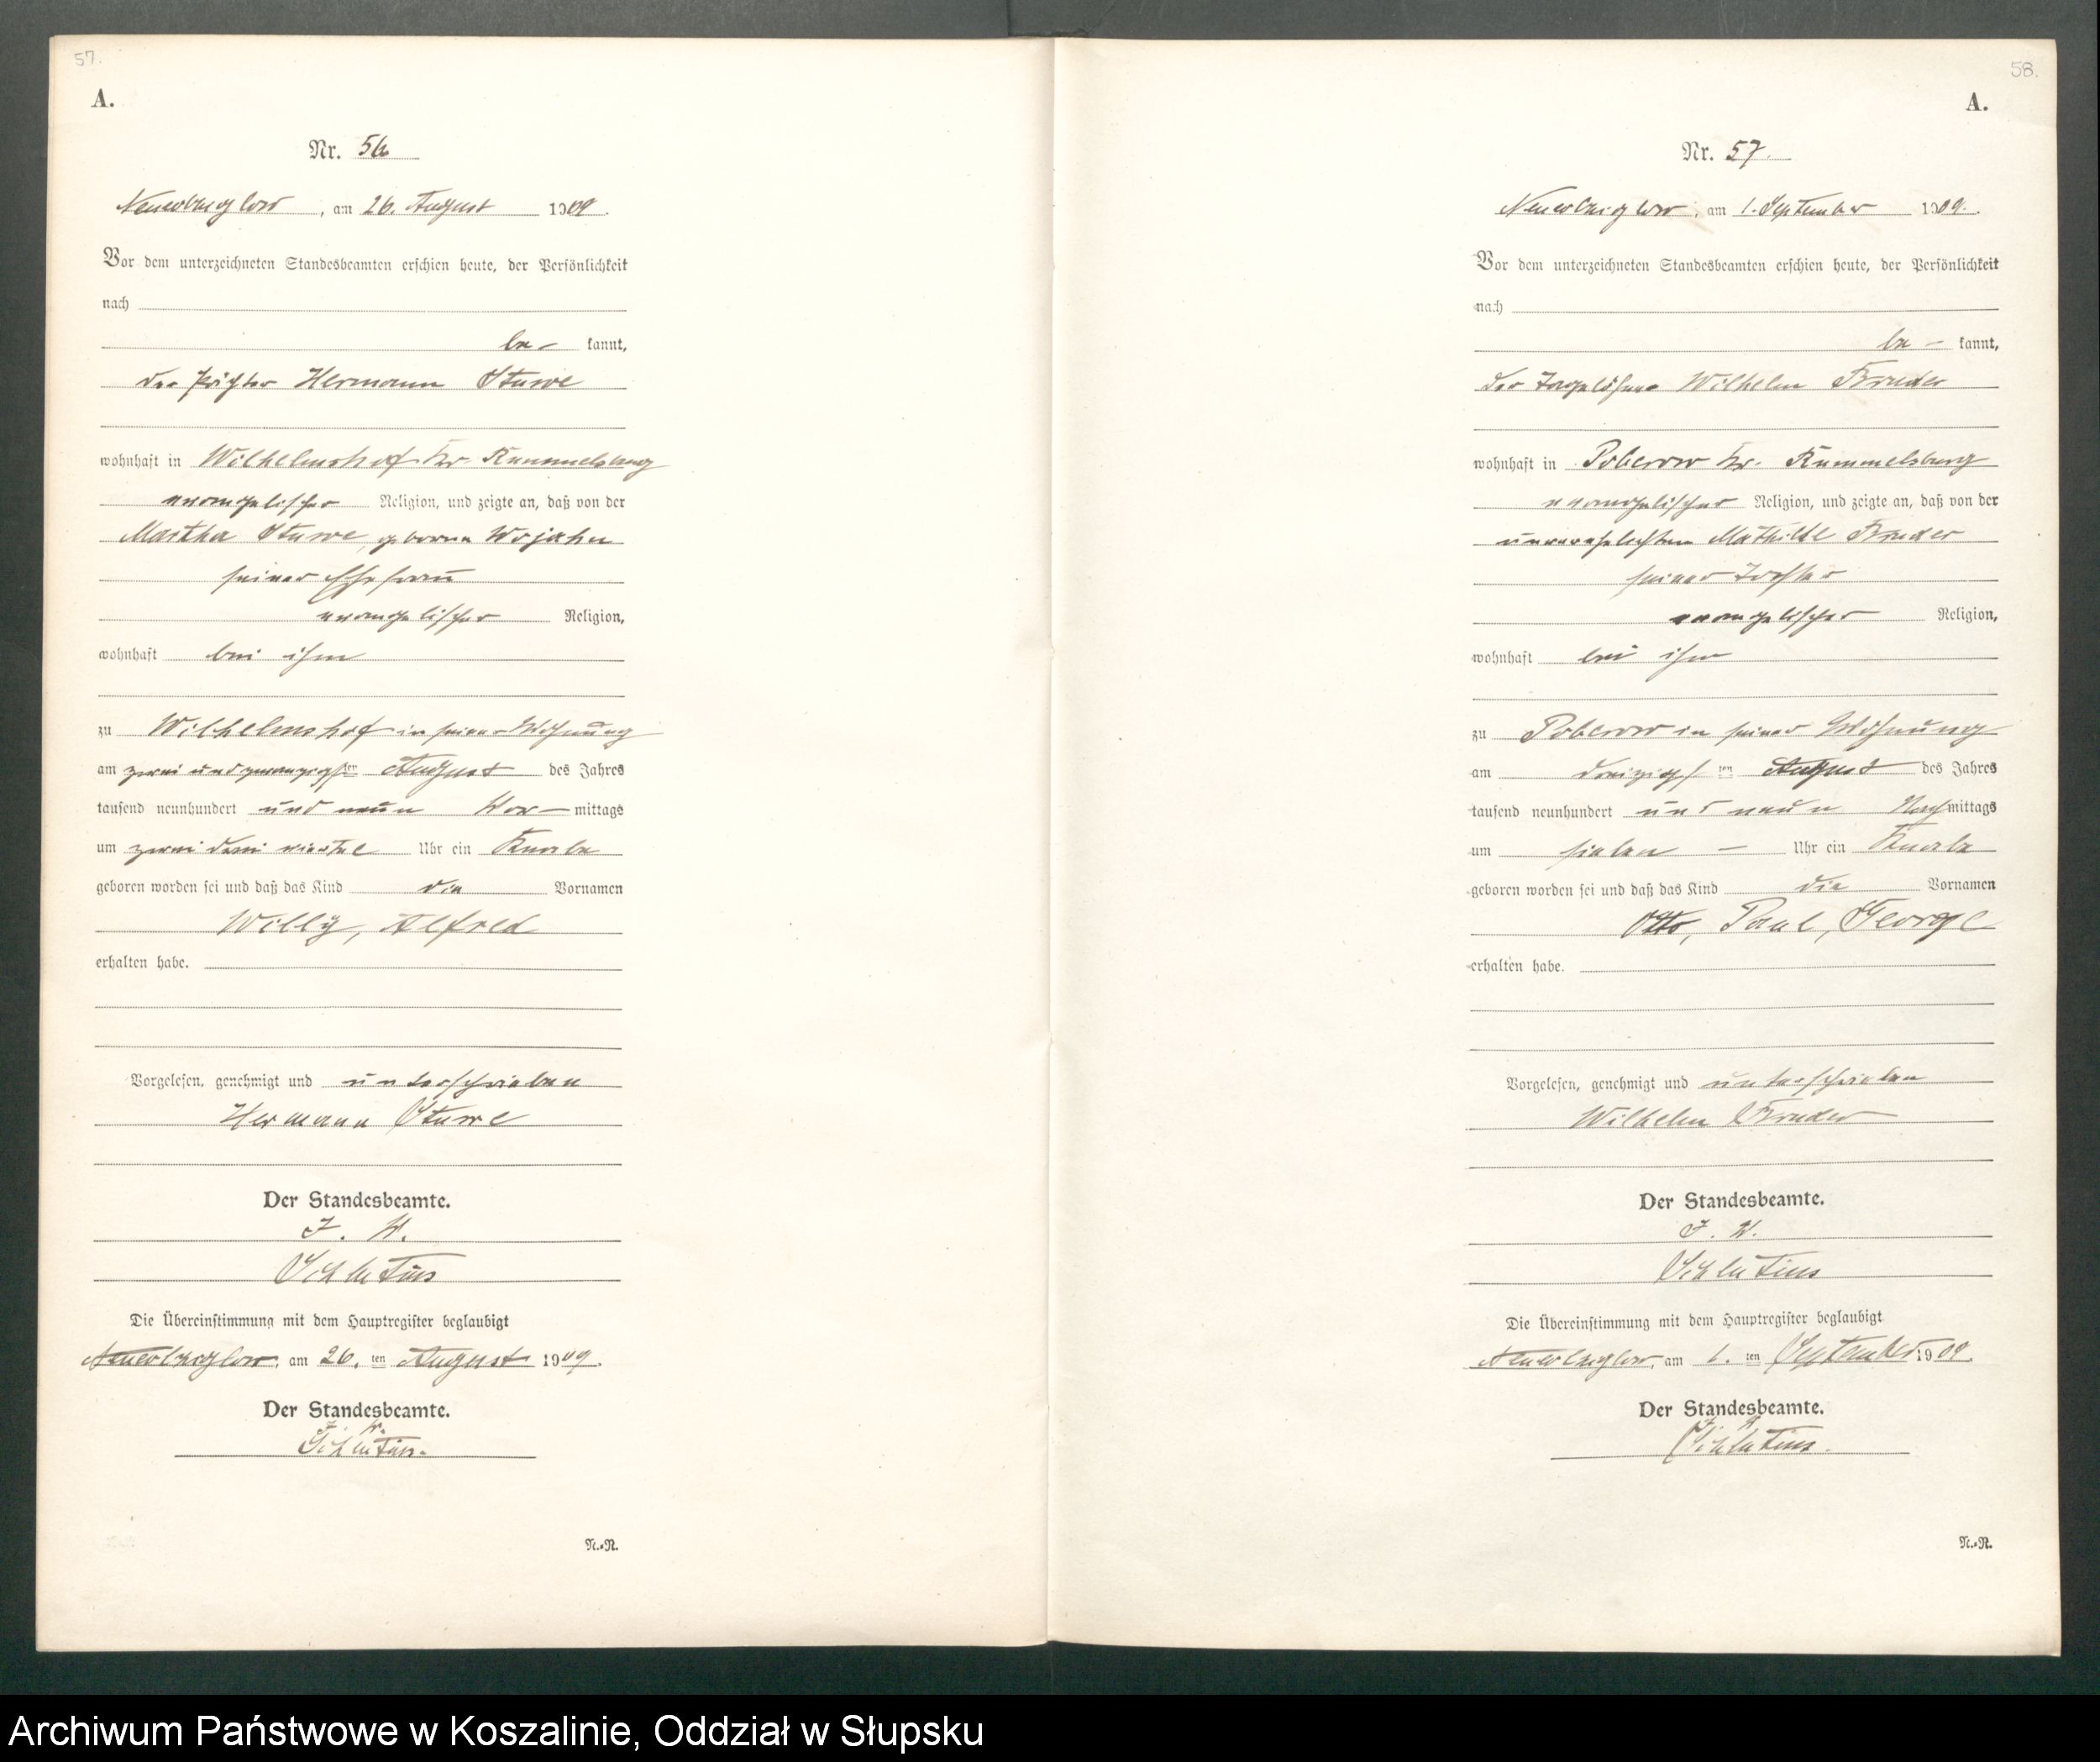 57.
A.
Nr. 56
am 26. August 1909.
Vor dem unterzeichneten Standesbeamten erschien heute, der Persönlichkeit
nach
be- kannt,
der Pächter Hermann Stuwe
wohnhaft in Wilhelmshof Kr. Rummelsburg
evangelischer Religion, und zeigte an, daß von der
Martha Stuwe, geborne Wojahn
seiner Ehefrau
evangelischer Religion,
wohnhaft bei ihm
zu Wilhelmshof in seiner Wohnung
am zwei und zwanzigsten August des Jahres
tausend neunhundert und neun Vor- mittags
um zwei drei viertel Uhr ein Knabe
geboren worden sei und daß das Kind die Vornamen
Willy, Alfred
erhalten habe.
Vorgelesen, genehmigt und unterschrieben
Hermann Stuwe
Der Standesbeamte.
J. V.
Die Übereinstimmung mit dem Hauptregister beglaubigt
am 26. ten August 1909.
Der Standesbeamte.
J. V.
N.-R.
58.
A.
Nr. 57.
am 1. September 1909.
Vor dem unterzeichneten Standesbeamten erschien heute, der Persönlichkeit
nach
be- kannt,
der Tagelöhner Wilhelm Bruder
wohnhaft in Poberow Kr. Rummelsburg
evangelischer Religion, und zeigte an, daß von der
unverehelichten Mathilde Bruder
seiner Tochter
evangelischer Religion,
wohnhaft bei ihm
zu Poberow in seiner Wohnung
am dreizigsten August des Jahres
tausend neunhundert und neun Nachmittags
um sieben — Uhr ein Knabe
geboren worden sei und daß das Kind die Vornamen
Otto, Paul, George
erhalten habe.
Vorgelesen, genehmigt und unterschrieben
Wilhelm Bruder
Der Standesbeamte.
J. V.
Die Übereinstimmung mit dem Hauptregister beglaubigt
am 1. ten September 1909.
Der Standesbeamte.
N.-R.
Archiwum Państwowe w Koszalinie, Oddział w Słupsku